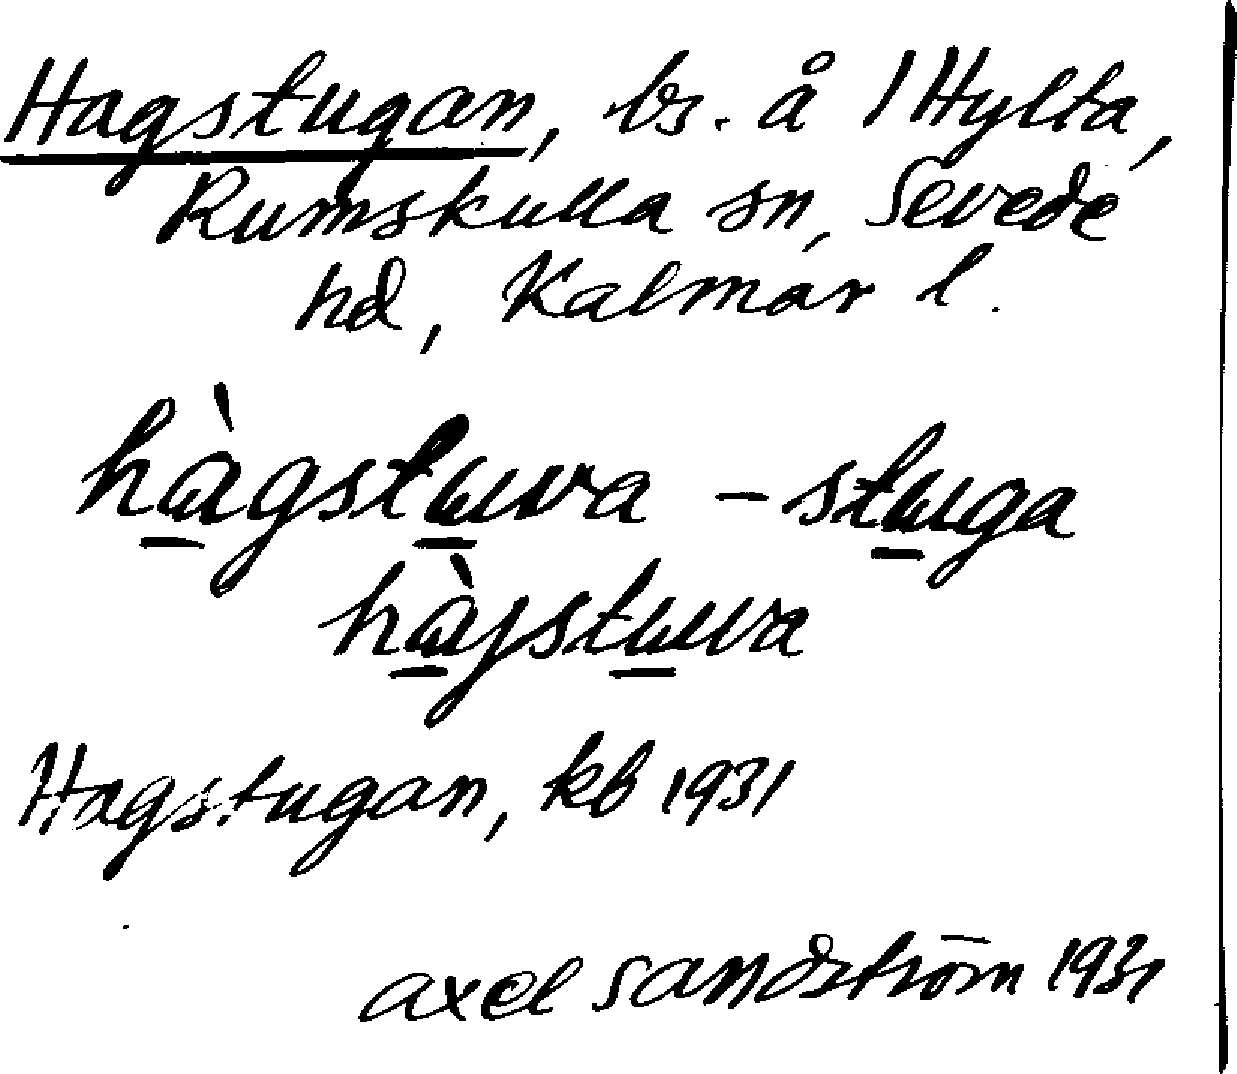 Hagstugan, bs. å 1 Hylta,
Rumskulla sn, Sevede
hd, Kalmar l.
hàgstuva - stuga
hàjstuva
Hagstugan, kb 1931
axel sandström 1931